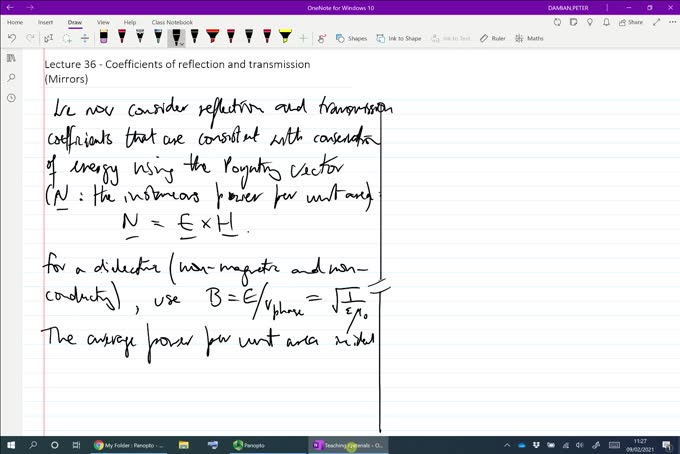 OneNote for Windows 10
DAMIAN,PETER
Home Insert Draw View Help Class Notebook
Share
Shapes Ink to Shape Ink to Text Ruler Maths
Lecture 36 - Coefficients of reflection and transmission
(Mirrors)
We now consider reflection and transmission
coefficients that are consistent with conservation
of energy using the Poynting vector
(N : the instaneous power per unit area) :
N = E × H .
For a dielectric (non-magnetic and non-
conducty), use B = E/v phase = √ 1/ε μ₀
The average power per unit area
My Folder : Panopto
Panopto
Teaching materials - O...
11:27
09/02/2021